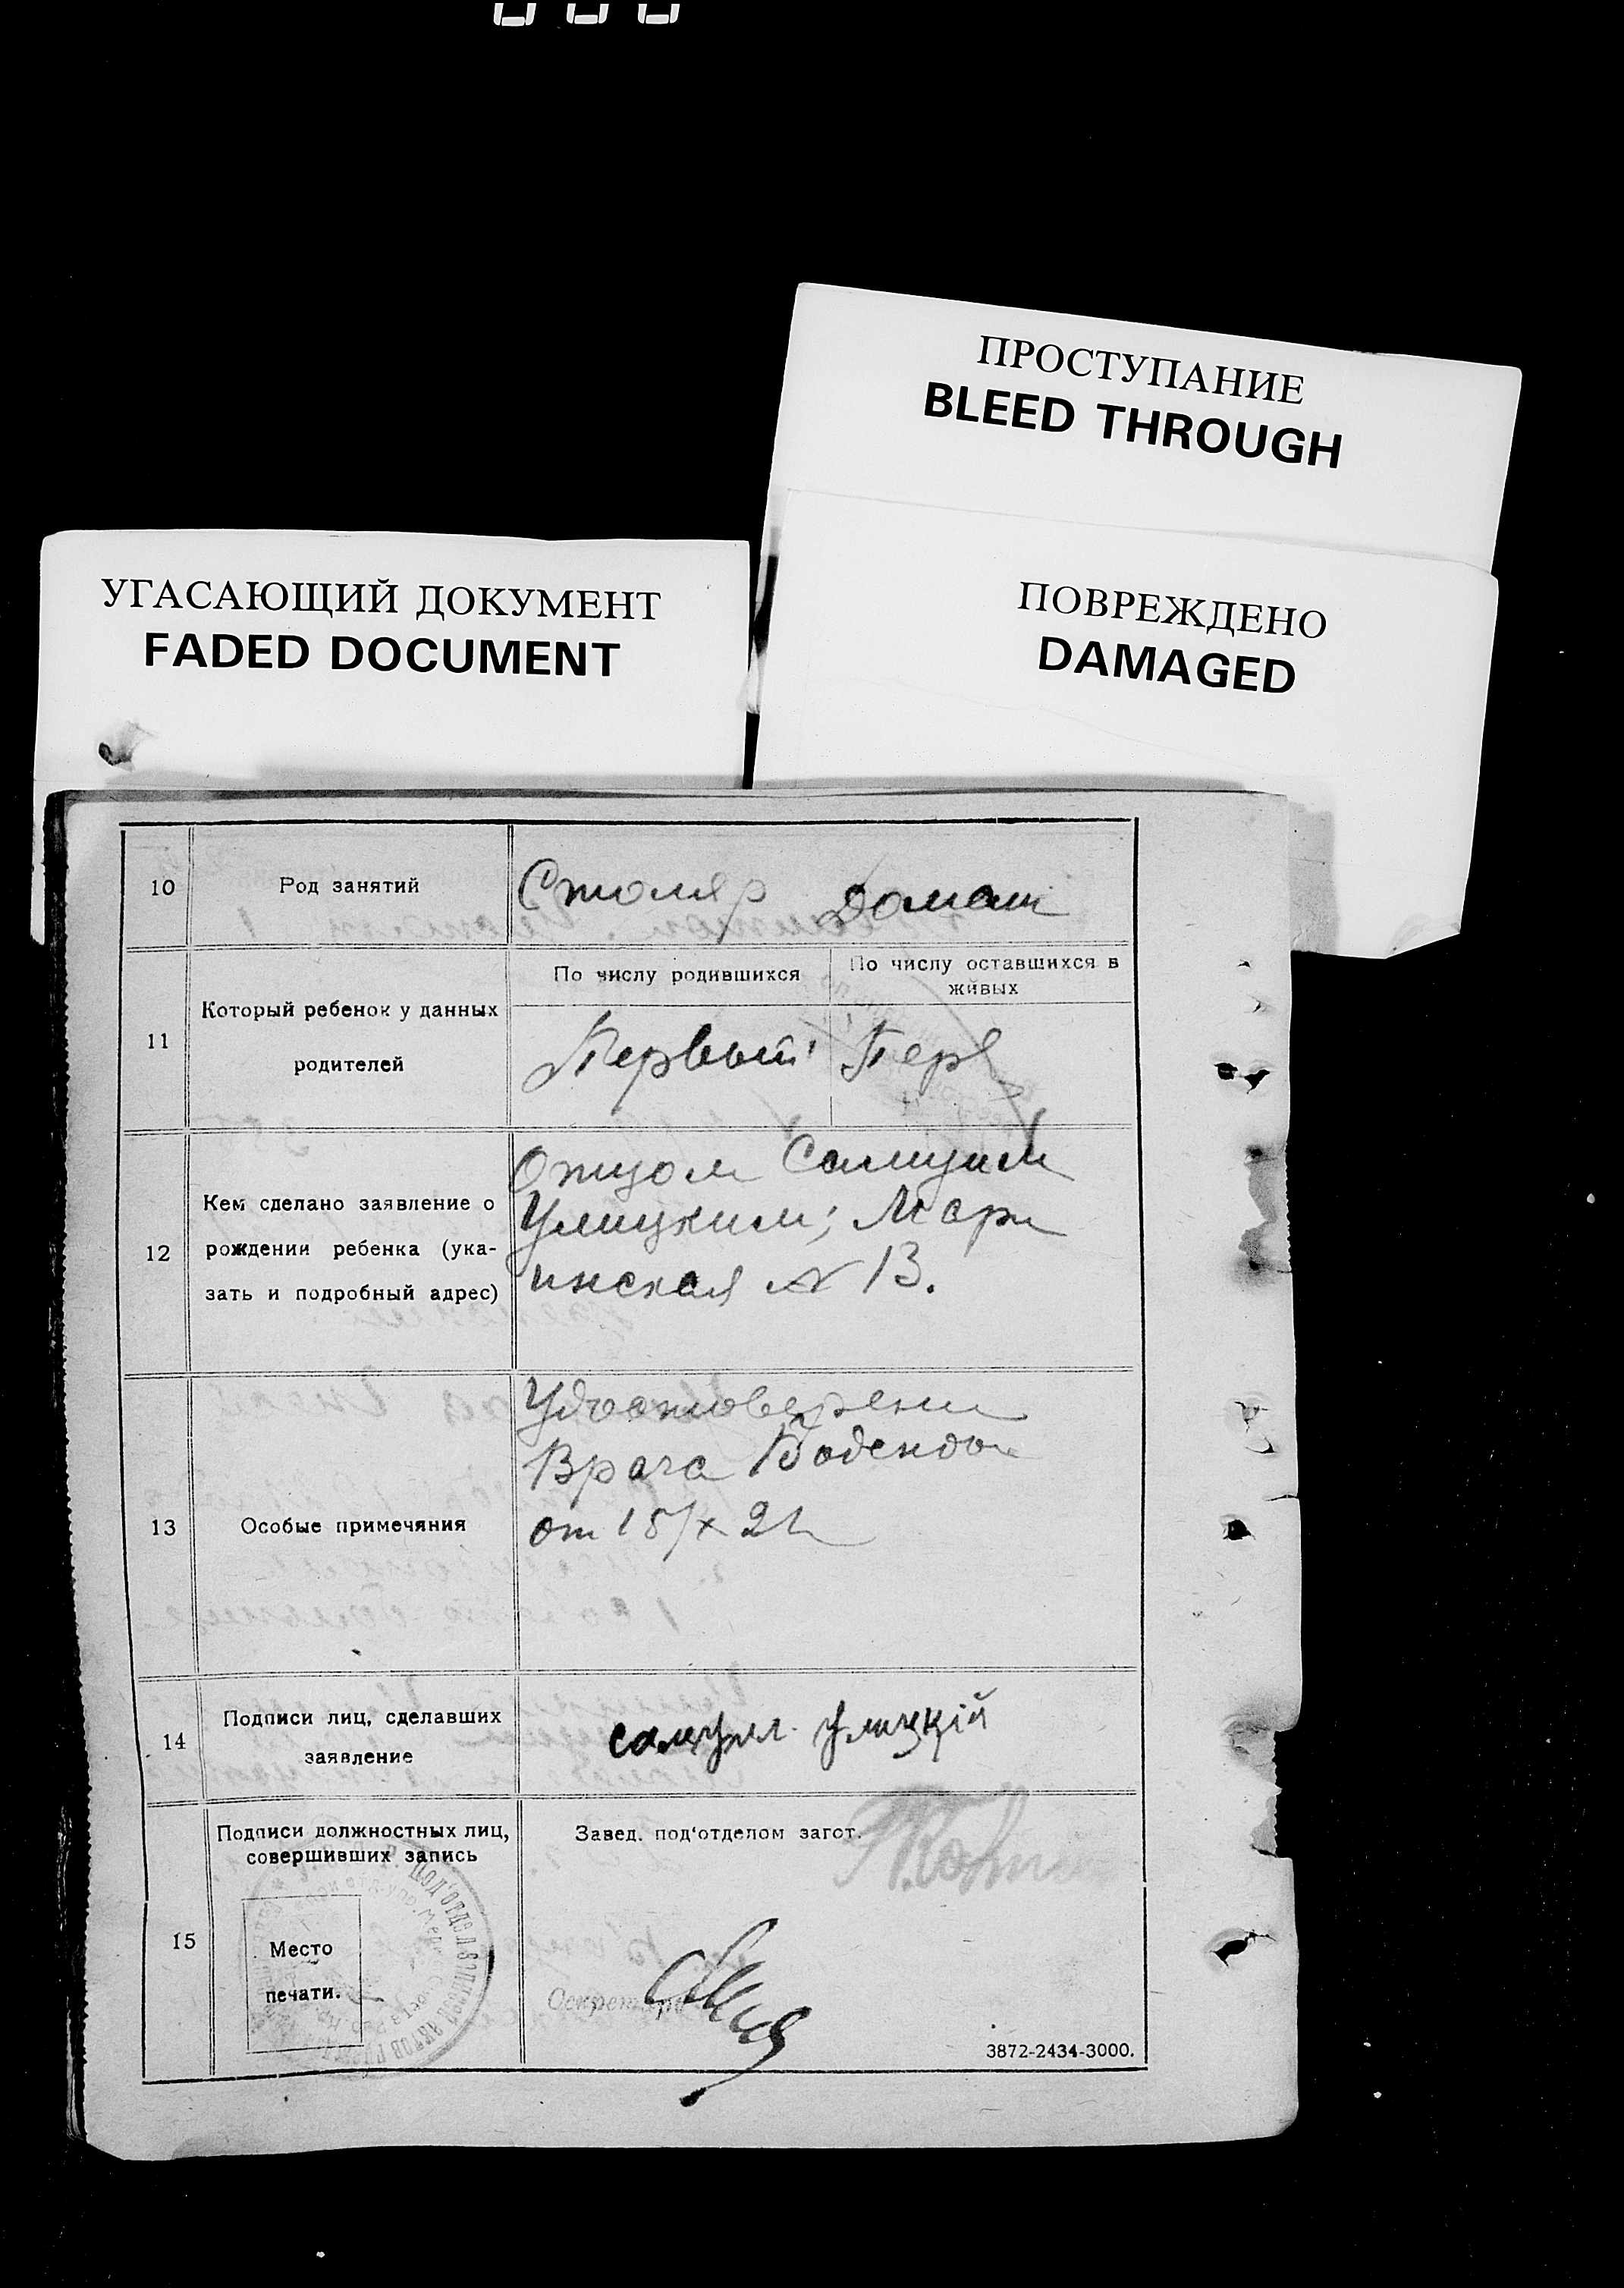 ПРОСТУПАНИЕ
BLEED THROUGH
УГАСАЮЩИЙ ДОКУМЕНТ
FADED DOCUMENT
ПОВРЕЖДЕНО
DAMAGED
10 Род занятий Столяр Домаш
11 Который ребенок у данных
родителей
По числу родившихся
По числу оставшихся в
живых
Первый Перв
12 Кем сделано заявление о
рождении ребенка (ука-
зать и подробный адрес)
Отцом Самуилом
Улицким; Мари
инская № 13.
13 Особые примечяния
Удостоверени
Врача
от 15/X 21
14 Подписи лиц, сделавших
заявление
Самуил Улицкій
15 Подписи должностных лиц,
совершивших запись
Место
печати.
Завед. под'отделом загот.
Секретарь
3872-2434-3000.